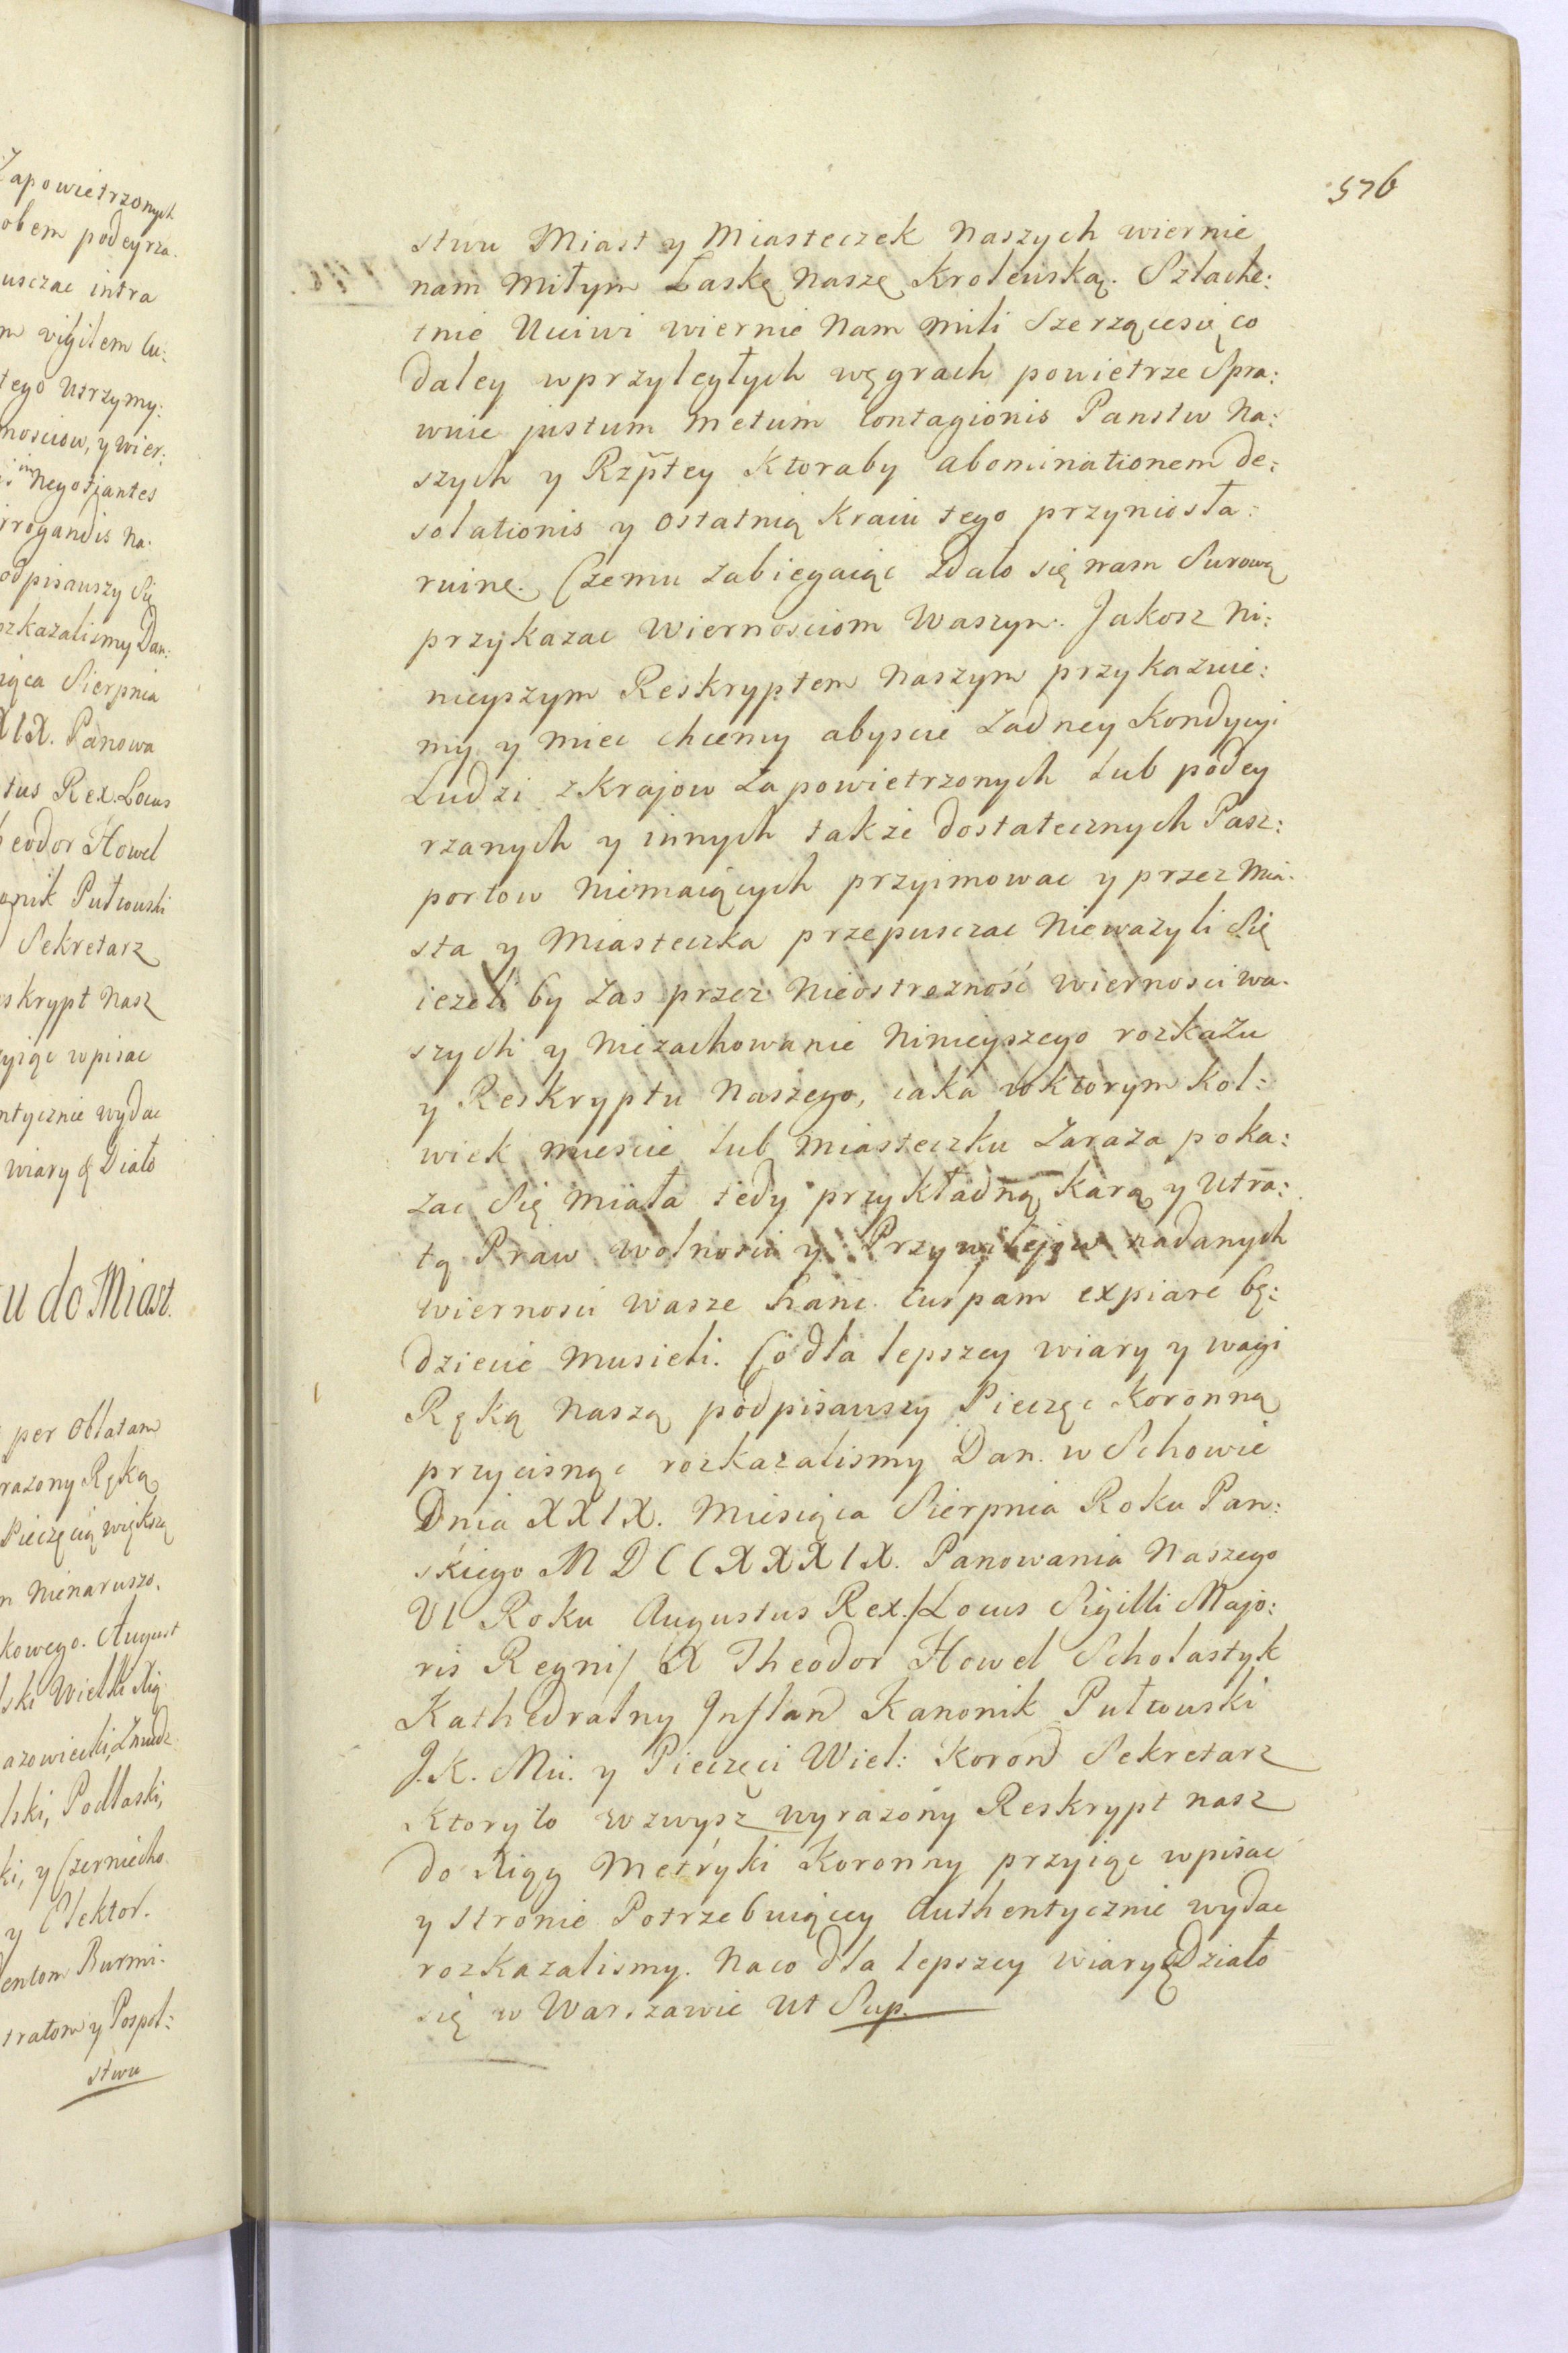 Zapowietrzonych
obem podeyrza.
uszczac intra
m vigilem cu:
tego utrzymy:
nosciow, y wier:
in Negotiantes
rrogandis na.
odpisawszy Się
zkazalismy Dan:
iąca Sierpnia
XIX. Panowa
tus Rex. Locus
heodor Howel
onik Pułtuski
Sekretarz
skrypt nasz
yiąc wpisac
ntycznie wydac
wiary & Diało
u do Miast.
per Oblatam
razony Ręką
Pieczęcią większą
m nienaruszo.
kowego. August
lski Wielki Xię
azowiecki, Zmudz
lski, Podlaski,
ki, y Czerniecho
y Elektor.
dentom Burmi.
stratom y Pospol:
stwu
576
stwu Miast y Miasteczek Naszych wiernie
nam Miłym Łaskę Naszę Krolewską. Szlache:
tnie Uciwi wiernie Nam mili Szerząciesię co
daley wprzyległych węgrach powietrze Spra:
wuie justum metum Contagionis Panstw Na:
szych y Rzptey Ktoraby abominationem de:
solationis y ostatnią Kraiu tego przyniosła:
ruinę. Czemu zabiegaiąc zdało się nam Surową
przykazac Wiernosciom Waszym. Jakosz Ni:
nieyszym Reskryptem Naszym przykazuie:
my y miec chcemy abyscie Zadney Kondycyi
Ludzi z Krajow Zapowietrzonych lub podey
rzanych y innych takze dostatecznych Pasz:
portow Niemaiących przyimowac y przez Mia.
sta y Miasteczka przepuszczac Niewazyli Się
iezeli by Zas przez Nieostrezność wiernosci wa.
szych y Niezachowanie Ninieyszego rozkazu
y Reskryptu Naszego, iaka wktorym kol:
wiek miescie lub Miasteczku Zaraza poka:
zac Się miała tedy przykładną karą y Utra:
tą Praw wolnosci y Przywilejow nadanych
wiernosci wasze hanc culpam expiare bę:
dziecie musieli. Co dla lepszey wiary y wagi
Ręką Naszą podpisawszy Pieczęc Koronną
przycisnąc rozkazalismy Dan. w Schowie
Dnia XXIX. Miesiąca Sierpnia Roku Pan:
skiego MDCCXXXIX. Panowania Naszego
VI Roku Augustus Rex./Locus Sigilli Majo:
ris Regni/ X Theodor Howel Scholastyk
Kathedralny Infland Kanonik Pułtuski
J.K. Mci. y Pieczęci Wiel: Koron Sekretarz
Ktoryto wzwysz wyrazony Reskrypt nasz
do Xiąg Metryki Koronny przyiąc wpisac
y Stronie Potrzebuiącey Authentycznie wydac
rozkazalismy. Naco dla lepszey wiary & Działo
się w Warszawie Ut Sup.